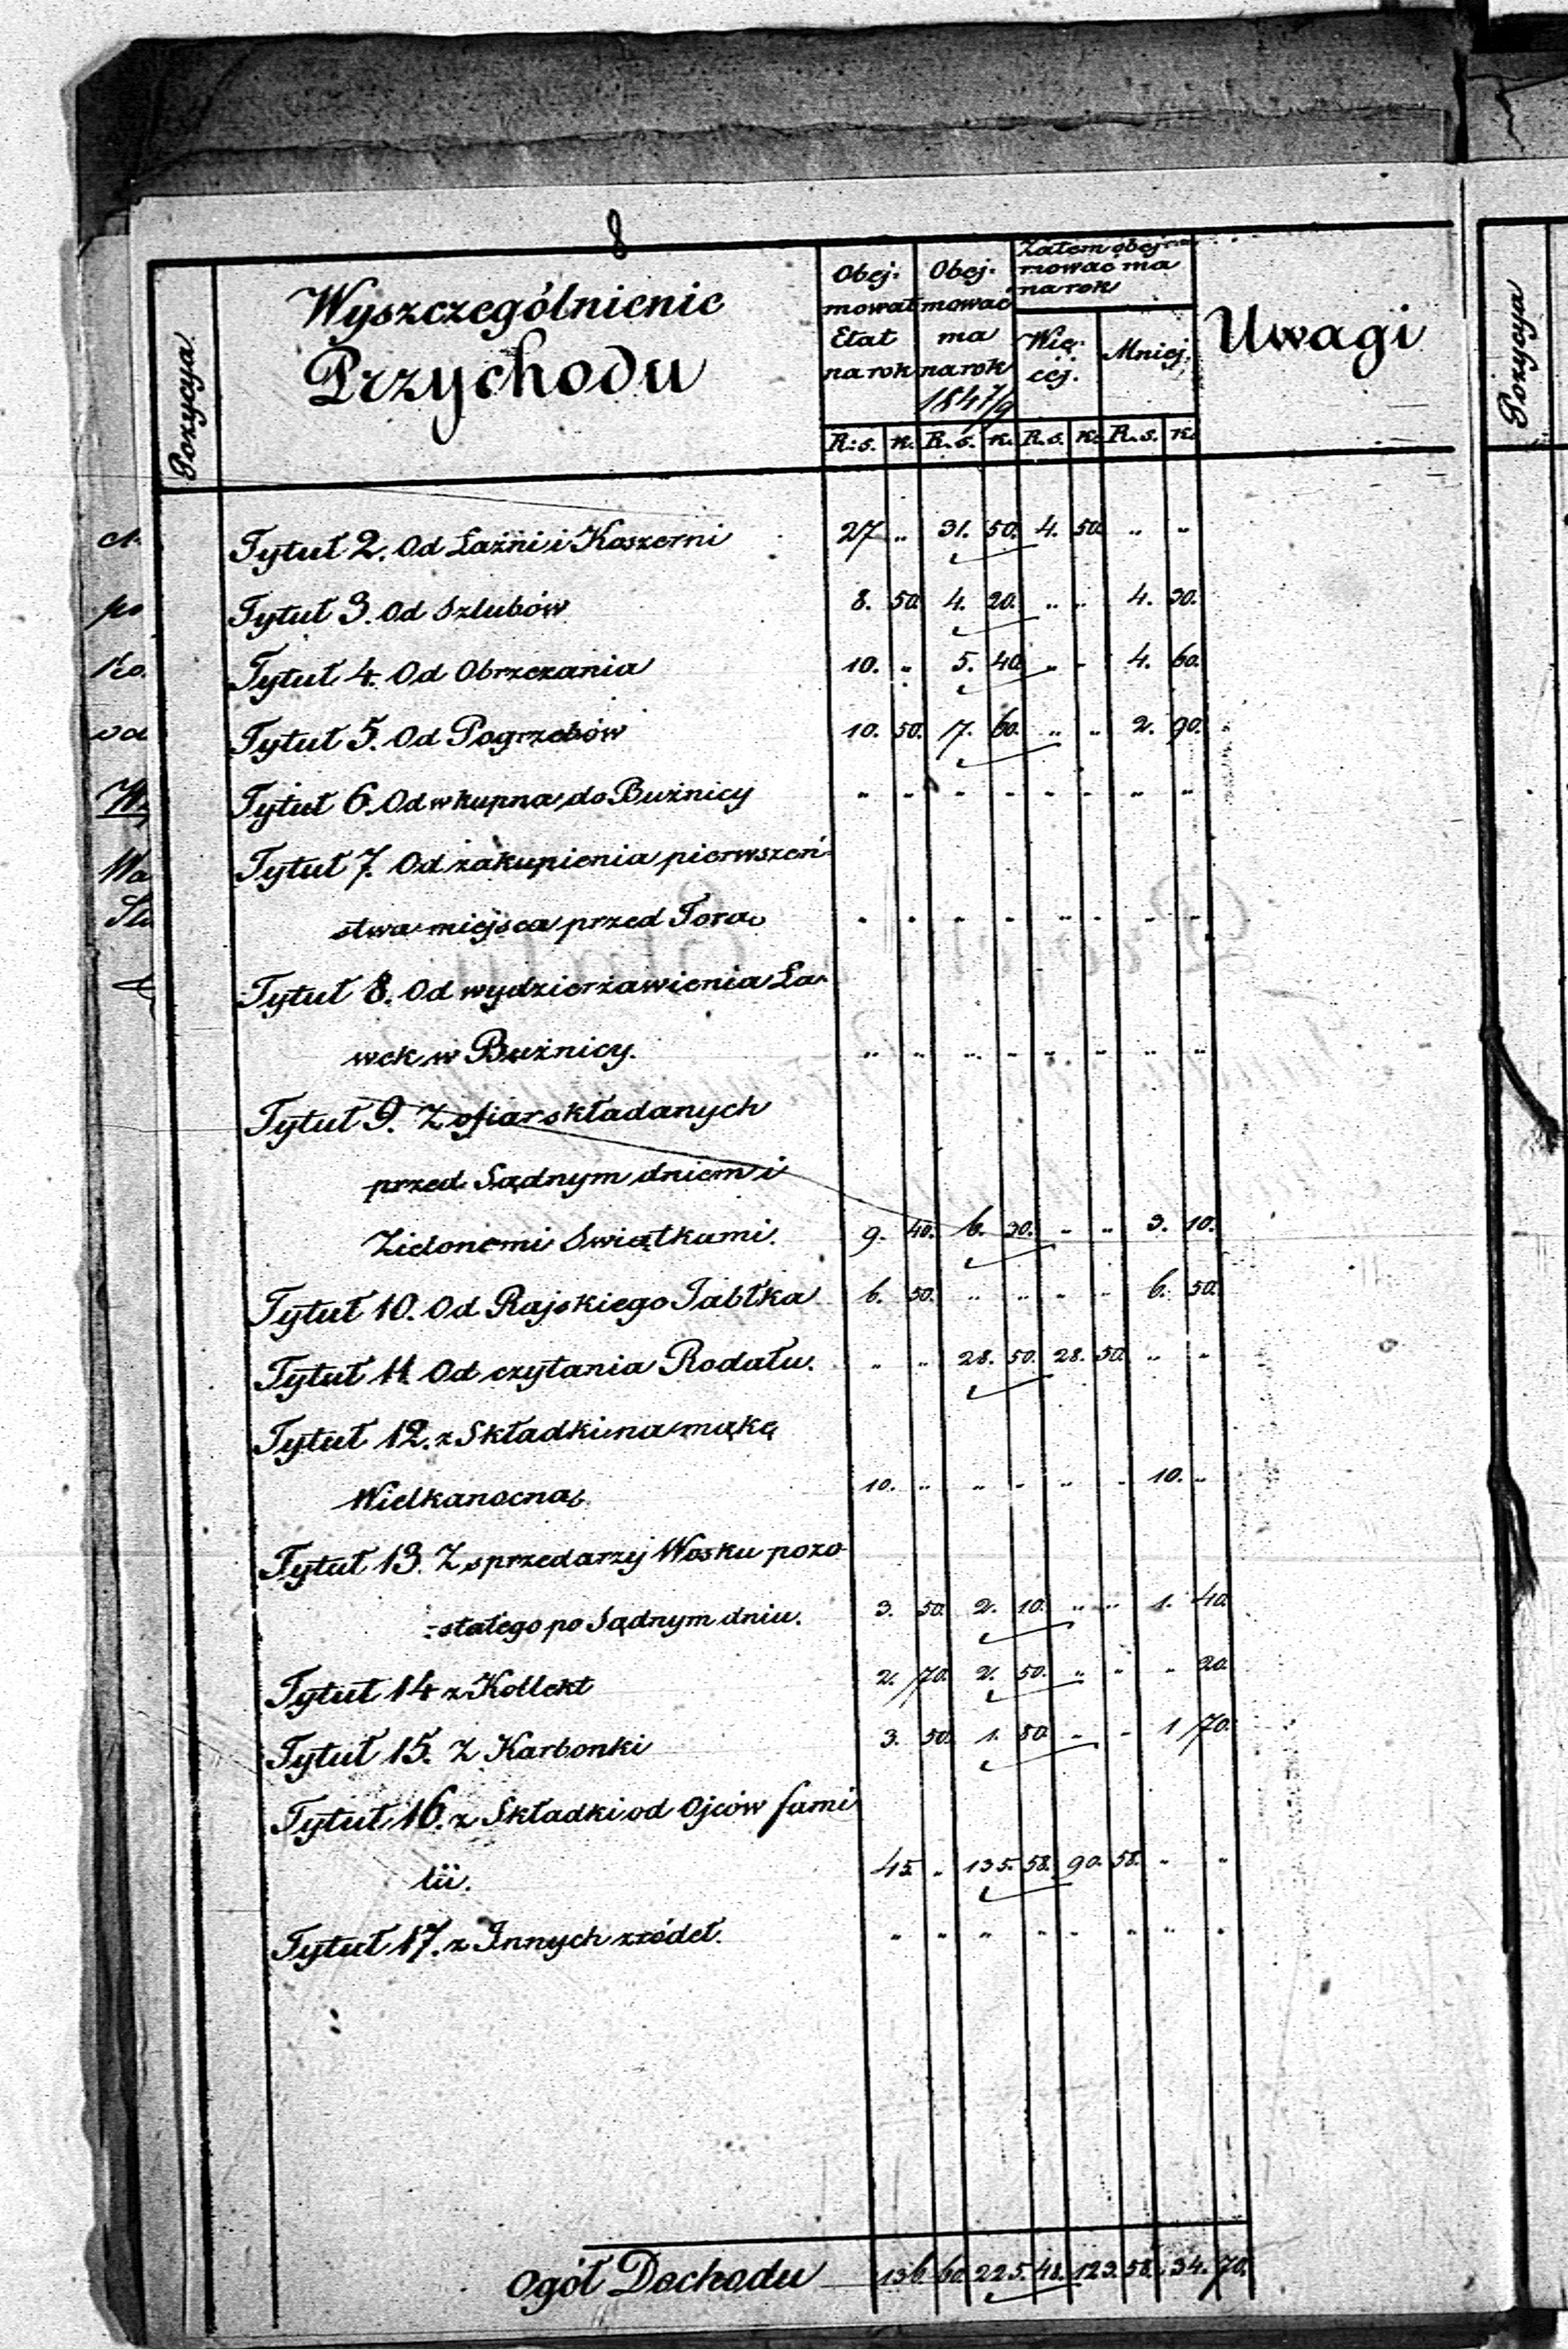 8
Pozycya
Wyszczególnienie
Przychodu
Obej-
mował
Etat
na rok
Obej-
mować
ma
na rok
1847/9
Zatem obej-
mować ma
na rok
Wię-
cej.
Mniej.
Uwagi
R. s. k. R. s. k. R. s. k. R. s. k.
Tytuł 2. Od Łaźni i Koszerni 27 „ 31. 50. 4. 50. „ „
Tytuł 3. Od Szlubów 8. 50. 4. 20. „ „ 4. 30.
Tytuł 4. Od Obrzezania 10. „ 5. 40. „ „ 4. 60.
Tytuł 5. Od Pogrzebów 10. 50. 7. 60. „ „ 2. 90.
Tytuł 6. Od wkupna do Bużnicy „ „ „ „ „ „ „ „
Tytuł 7. Od zakupienia pierwszeń-
stwa miejsca przed Torą „ „ „ „ „ „ „ „
Tytuł 8. Od wydzierżawienia Ła-
wek w Bużnicy. „ „ „ „ „ „ „ „
Tytuł 9. Z ofiar składanych
przed Sądnym dniem i
Zielonemi Swiątkami. 9. 40. 6. 30. „ „ 3. 10.
Tytuł 10. Od Rajskiego Jabłka 6. 50. „ „ „ „ 6. 50.
Tytuł 11. Od czytania Rodału. „ „ 28. 50. 28. 50. „ „
Tytuł 12. z Składki na mąkę
Wielkanocną. 10. „ „ „ „ „ 10. „
Tytuł 13. Z sprzedarzy Wosku pozo
-stałego po Sądnym dniu. 3. 50. 2. 10. „ „ 1. 40.
Tytuł 14 z Kollekt 2. 70. 2. 50. „ „ „ 20.
Tytuł 15. Z Karbonki 3. 50. 1. 80. „ „ 1 70.
Tytuł 16. z Składki od Ojców fami
lii. 45. „ 135. 58. 90. 58. „ „
Tytuł 17. z Innych zródeł. „ „ „ „ „ „ „ „
Ogół Dochodu 136 60. 225. 48. 123. 58. 34. 70.
Pozycya